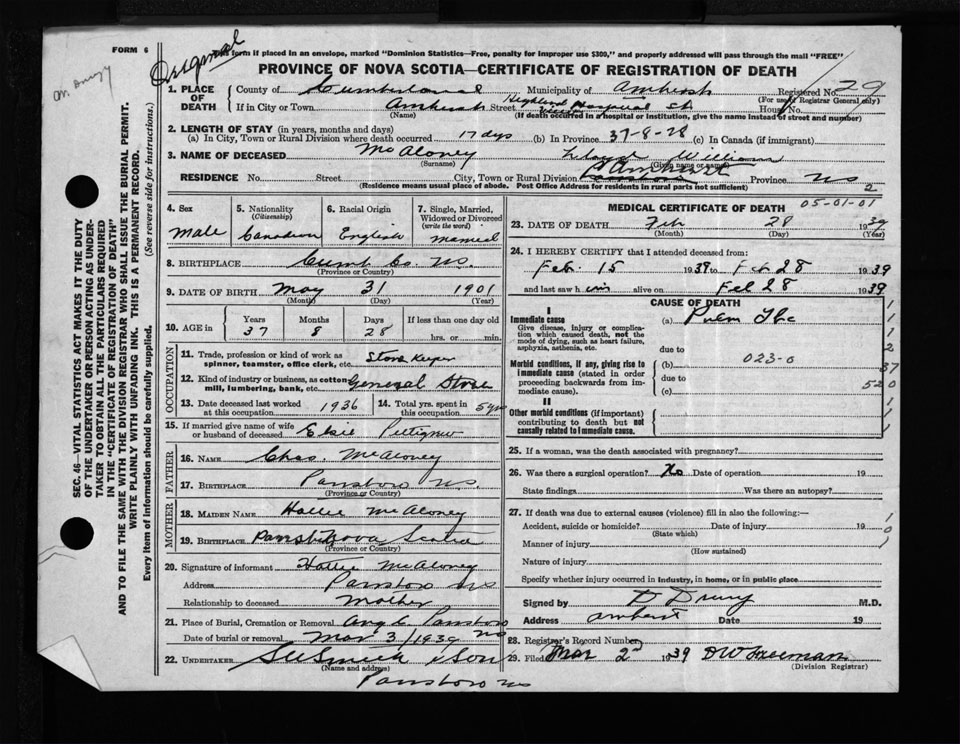 FORM 6
Original
This form if placed in an envelope, marked "Dominion Statistics—Free, penalty for improper use $300," and properly addressed will pass through the mail "FREE"
PROVINCE OF NOVA SCOTIA—CERTIFICATE OF REGISTRATION OF DEATH
1. PLACE OF DEATH County of Cumberland Municipality of Amherst Registered No. 29
(For use of Registrar General only)
If in City or Town Amherst Street Highland View Hospital St House No.
(Name) (If death occurred in a hospital or institution, give the name instead of street and number)
2. LENGTH OF STAY (in years, months and days)
(a) In City, Town or Rural Division where death occurred 17 dys (b) In Province 37-8-28 (c) In Canada (if immigrant)
3. NAME OF DECEASED McAloney Lloyd William
(Surname) (Given name or names)
RESIDENCE No. Street City, Town or Rural Division Amherst Province NS
(Residence means usual place of abode. Post Office Address for residents in rural parts not sufficient) 2
4. Sex Male
5. Nationality (Citizenship) Canadian
6. Racial Origin English
7. Single, Married, Widowed or Divorced (write the word) Married
8. BIRTHPLACE Cumb Co. NS.
(Province or Country)
9. DATE OF BIRTH May 31 1901
(Month) (Day) (Year)
10. AGE in Years 37 Months 8 Days 28 If less than one day old hrs. or min.
OCCUPATION
11. Trade, profession or kind of work as spinner, teamster, office clerk, etc. Store Keeper
12. Kind of industry or business, as cotton mill, lumbering, bank, etc. General Store
13. Date deceased last worked at this occupation 1936 14. Total yrs. spent in this occupation 5 yrs
15. If married give name of wife or husband of deceased Elsie
FATHER
16. NAME Chas. McAloney
17. BIRTHPLACE Parrsboro NS.
(Province or Country)
MOTHER
18. MAIDEN NAME Hattie McAloney
19. BIRTHPLACE Nova Scotia
(Province or Country)
20. Signature of informant Hattie McAloney
Address Parrsboro NS
Relationship to deceased Mother
21. Place of Burial, Cremation or Removal Parrsboro NS
Date of burial or removal Mar 3/1939
22. UNDERTAKER Smith & Son
(Name and address)
Parrsboro NS
MEDICAL CERTIFICATE OF DEATH 05-01-01
23. DATE OF DEATH Feb 28 1939
(Month) (Day) (Year)
24. I HEREBY CERTIFY that I attended deceased from:
Feb. 15 1939 to Feb 28 1939
and last saw him alive on Feb 28 1939
CAUSE OF DEATH
I
Immediate cause
Give disease, injury or complication which caused death, not the mode of dying, such as heart failure, asphyxia, asthenia, etc.
(a) Pulm Tbc
due to
Morbid conditions, if any, giving rise to immediate cause (stated in order proceeding backwards from immediate cause).
(b) 023-0
due to
(c)
37
520
II
Other morbid conditions (if important) contributing to death but not causally related to immediate cause.
25. If a woman, was the death associated with pregnancy?
26. Was there a surgical operation? No Date of operation 19
State findings Was there an autopsy?
27. If death was due to external causes (violence) fill in also the following:—
Accident, suicide or homicide? Date of injury 19
(State which)
Manner of injury
(How sustained)
Nature of injury
Specify whether injury occurred in industry, in home, or in public place
1
0
1
Signed by D Drury M.D.
Address Amherst Date 19
28. Registrar's Record Number
29. Filed Mar 2nd 1939 DW Freeman
(Division Registrar)
Dr. Drury
SEC. 46—VITAL STATISTICS ACT MAKES IT THE DUTY
OF THE UNDERTAKER OR PERSON ACTING AS UNDER-
TAKER TO OBTAIN ALL THE PARTICULARS REQUIRED
IN THE "CERTIFICATE OF REGISTRATION OF DEATH"
AND TO FILE THE SAME WITH THE DIVISION REGISTRAR WHO SHALL ISSUE THE BURIAL PERMIT.
WRITE PLAINLY WITH UNFADING INK. THIS IS A PERMANENT RECORD.
Every item of information should be carefully supplied. (See reverse side for instructions.)